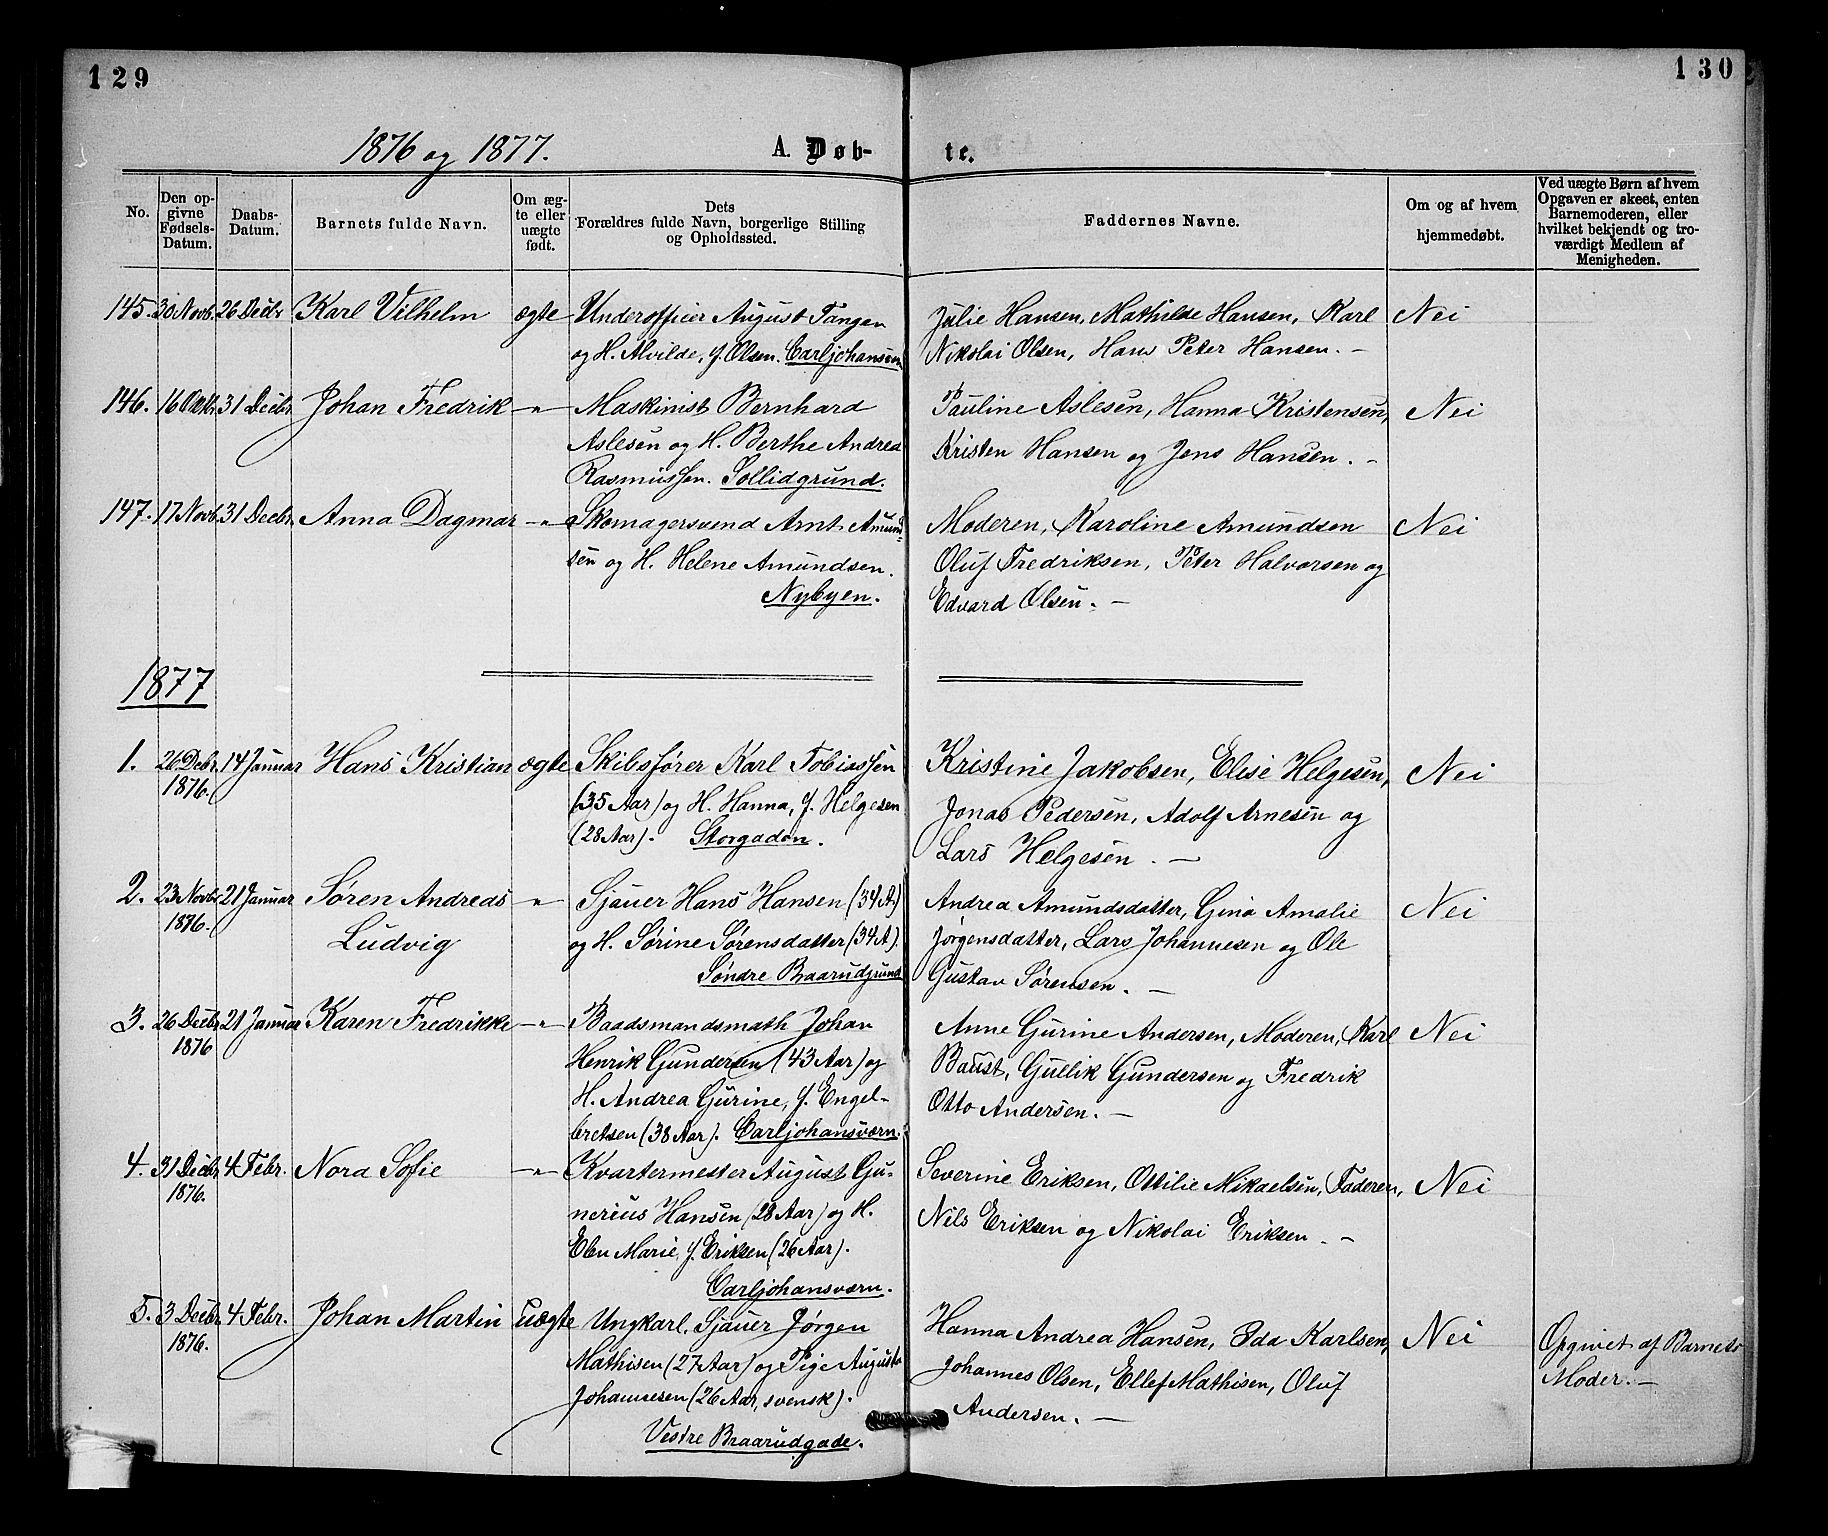 129
130
1876 og 1877.
A. Døb-
te.
No.
Den op-
givne
Fødsels-
Datum.
Daabs-
Datum.
Barnets fulde Navn.
Om æg-
te eller
uægte
født.
Dets
Forældres fulde Navn, borgerlige Stilling
og Opholdssted.
Faddernes Navne.
Om og af hvem
hjemmedøbt.
Ved uægte Børn af hvem
Opgaven er skeet, enten
Barnemoderen, eller
hvilket bekjendt og tro-
værdigt Medlem af
Menigheden.
145. 30 Novb. 26 Decbr Karl Vilhelm ægte Underofficer August Tangen
og H. Alvilde, f. Olsen. Carljohansværn
Julie Hansen, Mathilde Hansen, Karl Nei
Nikolai Olsen, Hans Peter Hansen. –
146. 16 Octbr. 31 Decbr. Johan Fredrik –"– Maskinist Bernhard
Aslesen og H. Berthe Andrea
Rasmussen. Sollidgrund.
Pauline Aslesen, Hanna Kristensen, Nei
Kristen Hansen og Jens Hansen. –
147. 17 Novb. 31 Decbr. Anna Dagmar –"– Skomagersvend Arnt Amund-
sen og H. Helene Amundsen.
Nybyen.
Moderen, Karoline Amundsen Nei
Oluf Fredriksen, Peter Halvorsen og
Edvard Olsen. –
1877
1. 26 Decbr. 14 Januar Hans Kristian ægte Skibsfører Karl Tobiassen
1876. (35 Aar) og H. Hanna, f. Helgesen
(28 Aar). Storgaden.
Kristine Jakobsen, Elise Helgesen, Nei
Jonas Pedersen, Adolf Arnesen og
Lars Helgesen. –
2. 23 Novbr 21 Januar Søren Andreas –"– Sjauer Hans Hansen (34 A.)
1876. Ludvig og H. Sørine Sørensdatter (34 A).
Søndre Braarudgrund
Andrea Amundsdatter, Gina Amalie Nei
Jørgensdatter, Lars Johannesen og Ole
Gustav Sørensen. –
3. 26 Decbr. 21 Januar Karen Fredrikke –"– Baadsmandsmath Johan
1876 Henrik Gundersen (43 Aar) og
H. Andrea Gurine, f. Engel-
bretsen (38 Aar). Carljohansværn.
Anne Gurine Andersen, Moderen, Karl Nei
Baust, Gullik Gundersen og Fredrik
Otto Andersen. –
4. 31 Decbr. 4 Febr. Nora Sofie –"– Kvartermester August Gu-
1876. nerius Hansen (28 Aar) og H.
Elen Marie, f. Eriksen (26 Aar).
Carljohansværn.
Severine Eriksen, Ottilie Mikaelsen, Faderen, Nei
Nils Eriksen og Nikolai Eriksen. –
5. 3 Decbr. 4 Febr. Johan Martin uægte Ungkarl, Sjauer Jørgen
1876. Mathisen (27 Aar) og Pige Augusta
Johannesen (26 Aar, svensk).
Vestre Braarudgade.
Hanna Andrea Hansen, Ida Karlsen, Nei Opgivet af Barnets
Johannes Olsen, Ellef Mathisen, Oluf Moder. –
Andersen. –